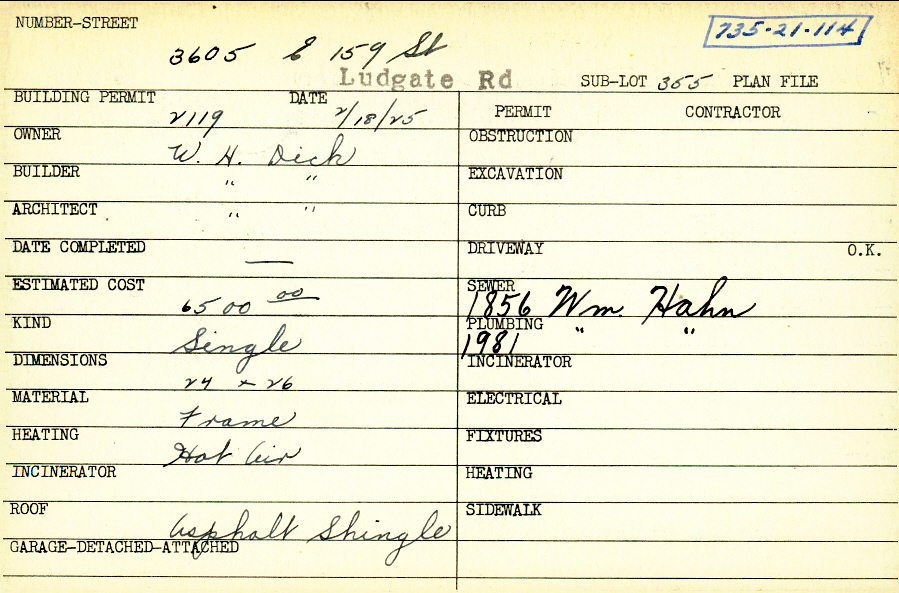 NUMBER-STREET
735-21-114
3605 E 159 St
Ludgate Rd
SUB-LOT 355 PLAN FILE
BUILDING PERMIT DATE
2119 2/18/25
PERMIT CONTRACTOR
OWNER
W. H. Dick
BUILDER
" "
ARCHITECT
" "
DATE COMPLETED
—
ESTIMATED COST
6500 00
KIND
Single
DIMENSIONS
24 x 26
MATERIAL
Frame
HEATING
Hot Air
INCINERATOR
ROOF
Asphalt Shingle
GARAGE-DETACHED-ATTACHED
OBSTRUCTION
EXCAVATION
CURB
DRIVEWAY O.K.
SEWER
1856 Wm. Hahn
PLUMBING " "
1981
INCINERATOR
ELECTRICAL
FIXTURES
HEATING
SIDEWALK